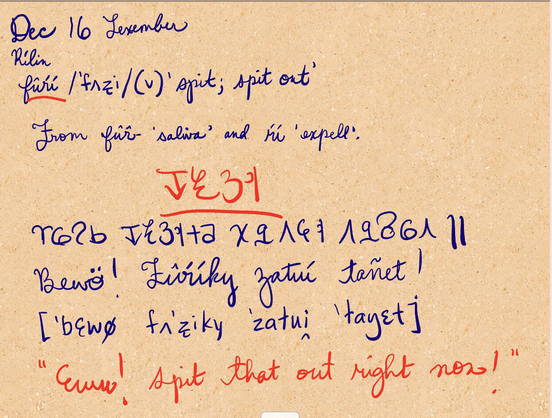 Dec 16 Lexember
Rílin
fûrí /'fʌʐi/ (v) 'spit; spit out'
From fûr- 'saliva' and rí 'expell'.
Bewö! Fûríky zatuí tañet!
['bɛwø fʌ'ʐiky 'zatui̯ 'taŋɛt]
"Eww! spit that out right now!"